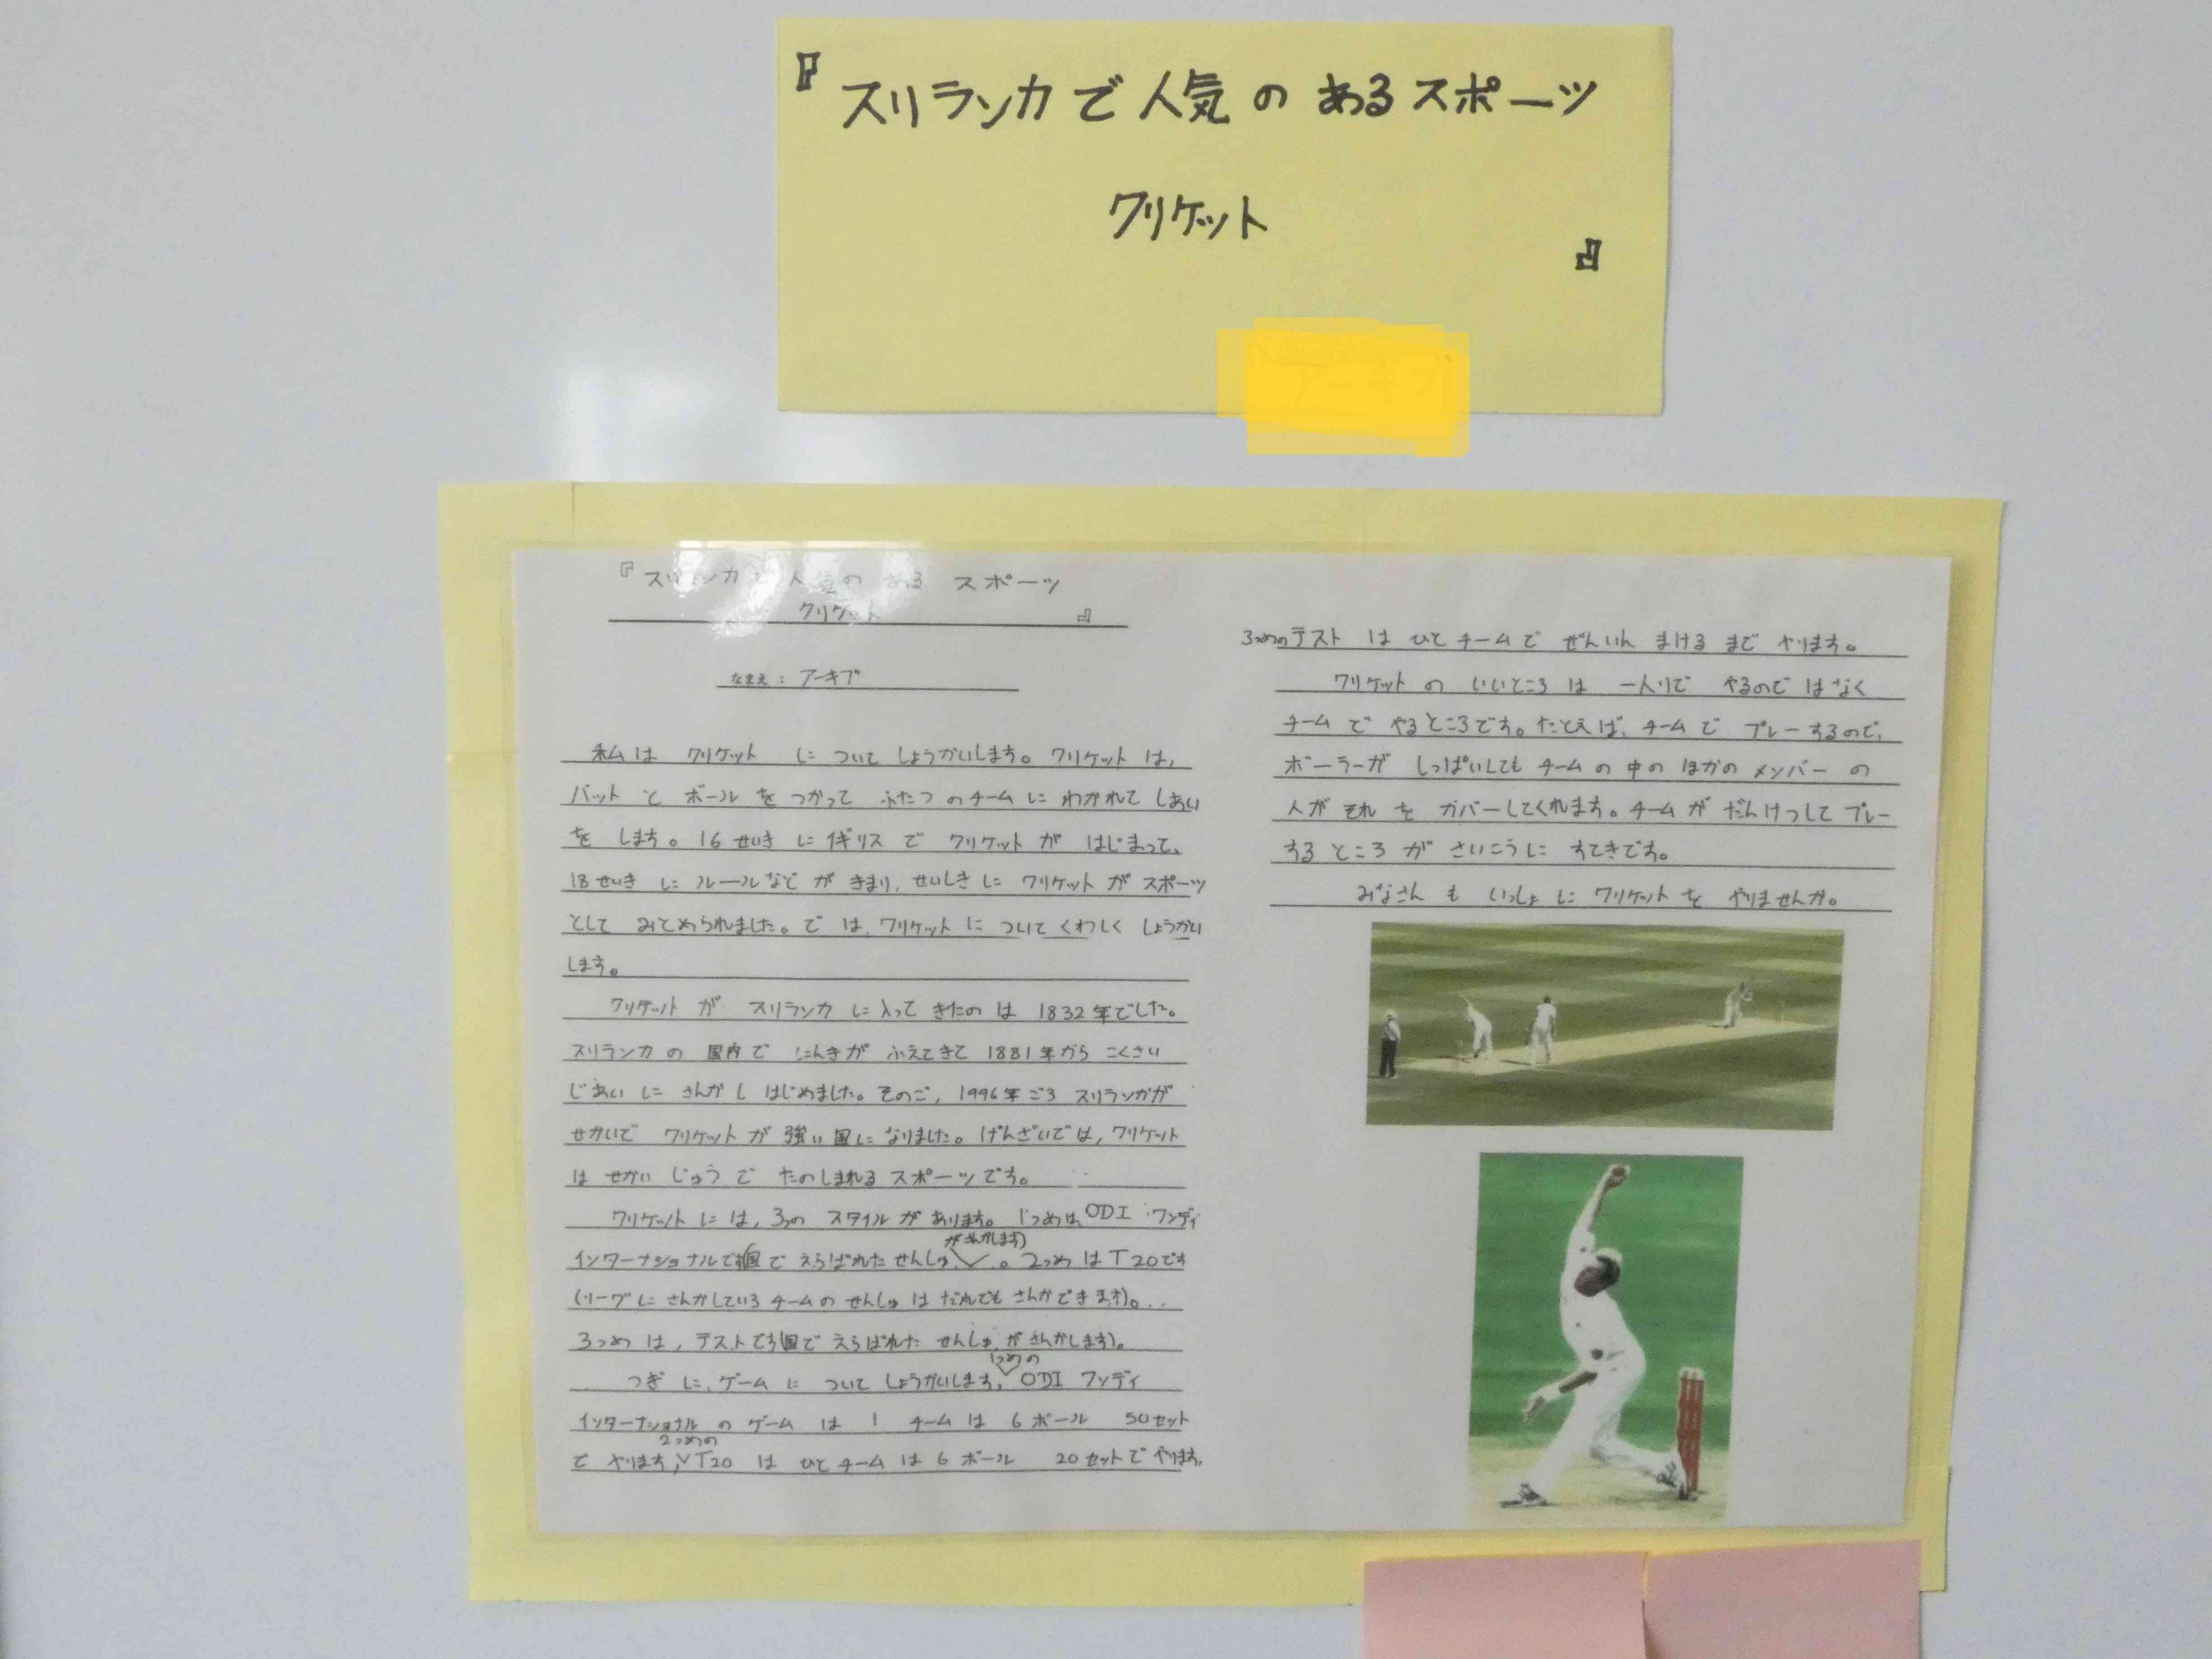 『スリランカで人気のあるスポーツ
クリケット
』
アーキブ
『スリランカで人気のあるスポーツ
クリケット』
なまえ：アーキブ
私はクリケットについてしょうかいします。クリケットは,
バットとボールをつかってふたつのチームにわかれてしあい
をします。16せいきにイギリスでクリケットがはじまって、
18せいきにルールなどがきまり,せいしきにクリケットがスポーツ
としてみとめられました。では,クリケットについてくわしくしょうかい
します。
クリケットがスリランカに入ってきたのは1832年でした。
スリランカの国内でにんきがふえてきて1881年からこくさい
じあいにさんかしはじめました。そのご,1996年ごろスリランカが
せかいでクリケットが強い国になりました。げんざいでは,クリケット
はせかいじゅうでたのしまれるスポーツです。
クリケットには,3つのスタイルがあります。1つめはODIワンディ
がさんかします)
インターナショナルで(国でえらばれたせんしゅ。2つめはT20です
(リーグにさんかしているチームのせんしゅはだれでもさんかできます)。
3つめは,テストです(国でえらばれたせんしゅがさんかします)。
1つめの
つぎに,ゲームについてしょうかいします,ODIワンディ
インターナショナルのゲームは1チームは6ボール50セット
2つめの
でやります,T20はひとチームは6ボール20セットでやります。
3つめのテストはひとチームでぜんいんまけるまでやります。
クリケットのいいところは一人りでやるのではなく
チームでやるところです。たとえば,チームでプレーするので、
ボーラーがしっぱいしてもチームの中のほかのメンバーの
人がそれをカバーしてくれます。チームがだんけつしてプレー
するところがさいこうにすてきです。
みなさんもいっしょにクリケットをやりませんか。